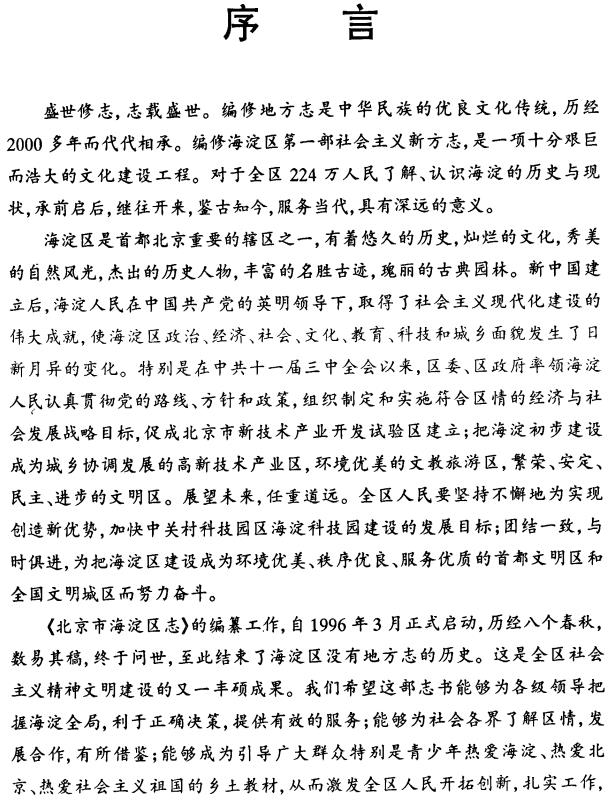 序 言
盛世修志,志载盛世。编修地方志是中华民族的优良文化传统,历经
2000 多年而代代相承。编修海淀区第一部社会主义新方志,是一项十分艰巨
而浩大的文化建设工程。对于全区 224 万人民了解、认识海淀的历史与现
状,承前启后,继往开来,鉴古知今,服务当代,具有深远的意义。
海淀区是首都北京重要的辖区之一,有着悠久的历史,灿烂的文化,秀美
的自然风光,杰出的历史人物,丰富的名胜古迹,瑰丽的古典园林。新中国建
立后,海淀人民在中国共产党的英明领导下,取得了社会主义现代化建设的
伟大成就,使海淀区政治、经济、社会、文化、教育、科技和城乡面貌发生了日
新月异的变化。特别是在中共十一届三中全会以来,区委、区政府率领海淀
人民认真贯彻党的路线、方针和政策,组织制定和实施符合区情的经济与社
会发展战略目标,促成北京市新技术产业开发试验区建立;把海淀初步建设
成为城乡协调发展的高新技术产业区,环境优美的文教旅游区,繁荣、安定、
民主、进步的文明区。展望未来,任重道远。全区人民要坚持不懈地为实现
创造新优势,加快中关村科技园区海淀科技园建设的发展目标;团结一致,与
时俱进,为把海淀区建设成为环境优美、秩序优良、服务优质的首都文明区和
全国文明城区而努力奋斗。
《北京市海淀区志》的编纂工作,自 1996 年 3 月正式启动,历经八个春秋,
数易其稿,终于问世,至此结束了海淀区没有地方志的历史。这是全区社会
主义精神文明建设的又一丰硕成果。我们希望这部志书能够为各级领导把
握海淀全局,利于正确决策,提供有效的服务;能够为社会各界了解区情,发
展合作,有所借鉴;能够成为引导广大群众特别是青少年热爱海淀、热爱北
京、热爱社会主义祖国的乡土教材,从而激发全区人民开拓创新,扎实工作,